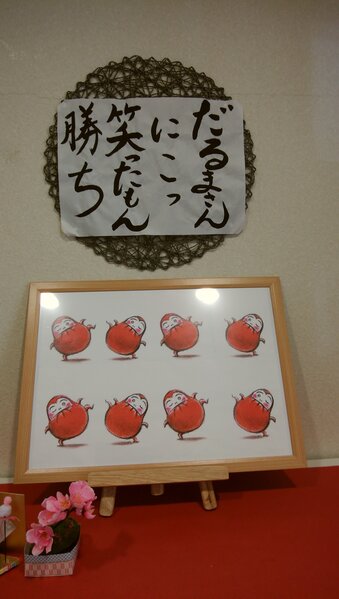 だるまさん
にこっ
笑ったもん
勝ち